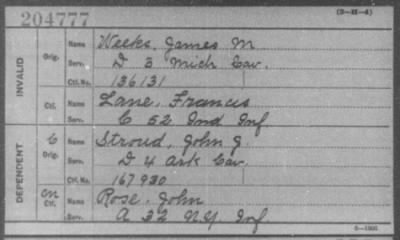 204777 (3-H-4)
INVALID
Orig. Name Weeks, James M
Serv. D 3 Mich Cav.
Ctf. No. 136131
Ctf. Name Lane, Francis
Serv. C 52 Ind Inf
DEPENDENT
C Orig. Name Stroud, John J.
Serv. D 4 Ark Cav.
Ctf. No. 167930
Ctf. Name Rose, John
Serv. A 32 N.Y. Inf